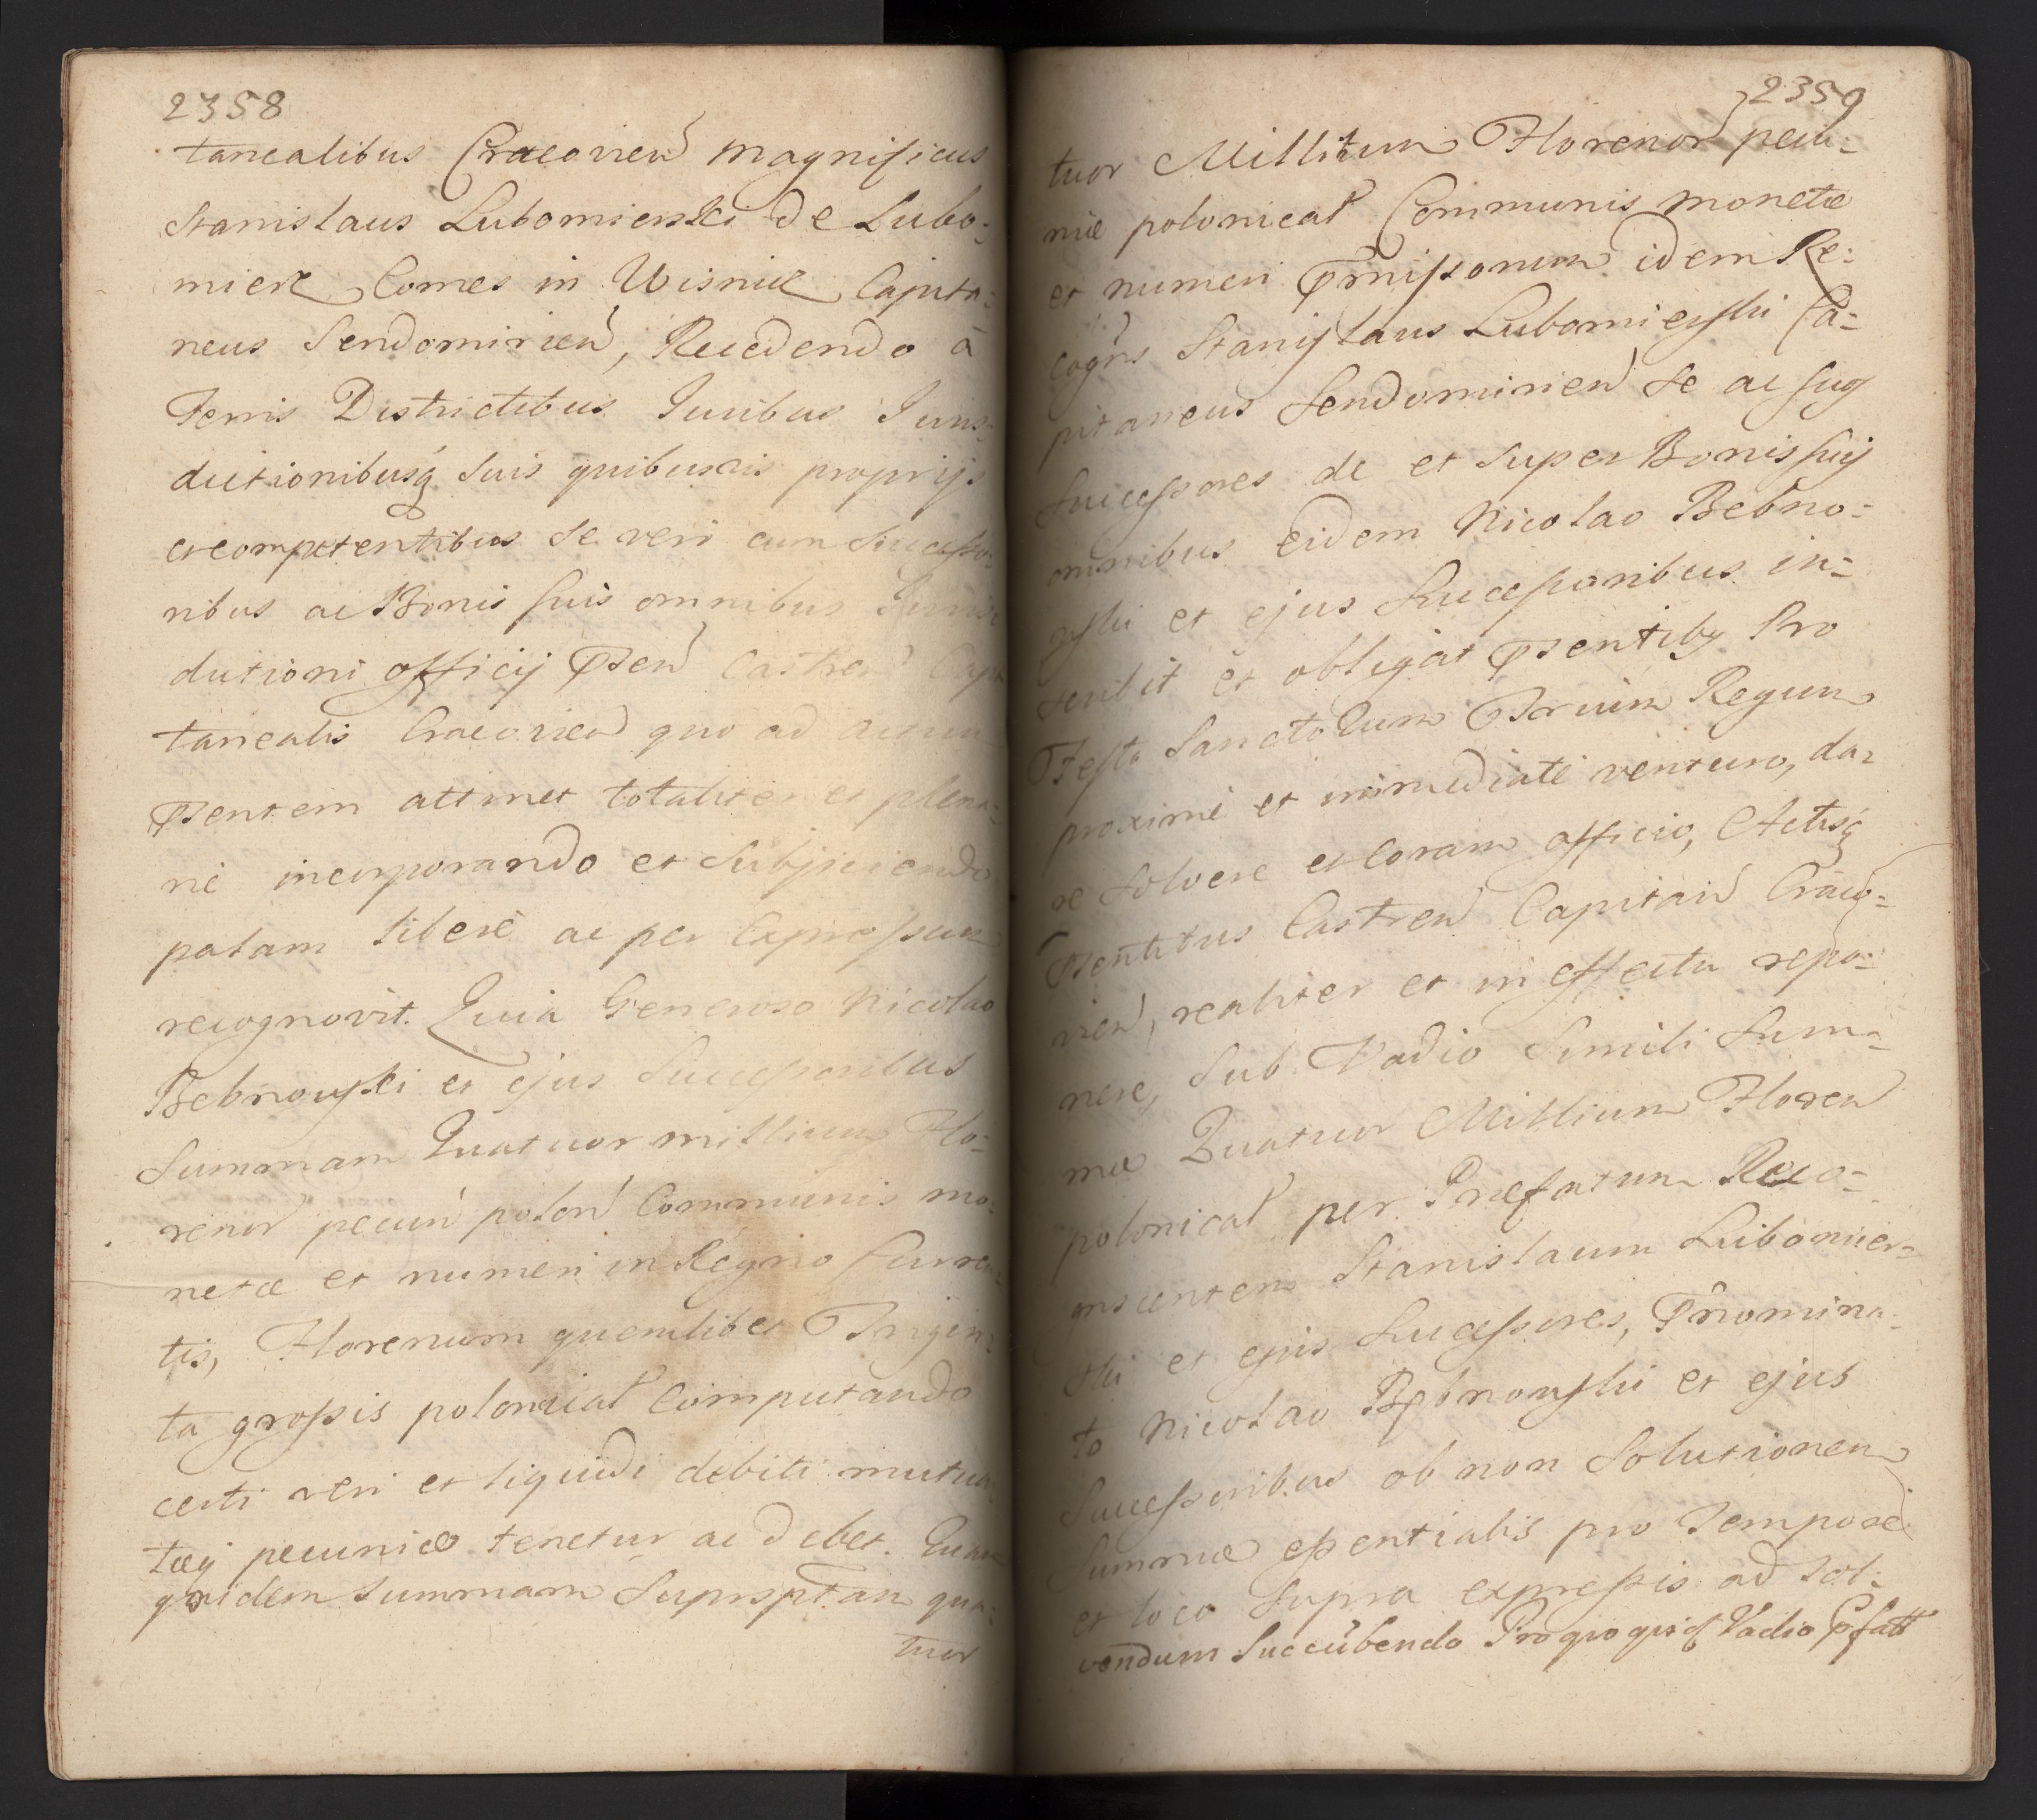 2358
tanealibus Cracovien Magnificus
Stanislaus Lubomierski de Lubo:
mierz Comes in Wisnicz Capita:
neus Sendomirien, Recedendo à
Terris Districtibus Juribus Juris:
dictionibusq suis quibusvis proprijs
et competentibus se vero cum Successo:
ribus ac Bonis suis omnibus Juris:
dictioni officij Psen Castren Capi
tanealis Cracovien quo ad actum
Psentem attinet totaliter et plena:
rie incorporando et subjiciendo
palam libere ac per Expressum
recognovit. Quia Generoso Nicolao
Bebnowski et ejus Successoribus
Summam Quatuor millium Flo:
renor pecun polon Communis mo:
netæ et numeri in Regno Curren:
tis, Florenum quemlibet Trigin:
ta grossis polonical Computando
certi veri et liquidi debiti mutua:
tæq pecuniæ tenetur ac debet. Quam
quidem Summam Suprsptam qua:
tuor
2359
tuor Millium Florenor pecu:
niæ polonical Communis Monetæ
et numeri Pmissorum idem Re:
cogns Stanislaus Lubomierski Ca:
pitaneus Sendomirien se ac suos
Successores de et super Bonis suis
omnibus eidem Nicolao Bebno:
wski et ejus Successoribus in:
scribit et obligat Psentiby Pro
Festo Sanctorum Trium Regum
proximè et immediatè venturo, da:
re solvere et Coram officio, Actisq
Psentibus Castren Capitan Craco:
vien, realiter et in effectu repo:
nere, Sub Vadio Simili Sum:
mæ Quatuor Millium Floren
polonical per Præfatum Reco:
gnscentem Stanislaum Lubomier:
ski et ejus Successores, Pnomina:
to Nicolao Bebnowski et ejus
Successoribus ob non Solutionem
Summæ essentialis pro Tempore
et loco supra expressis ad sol:
vendum Succübendo Pro quo quid Vadio Pfatt